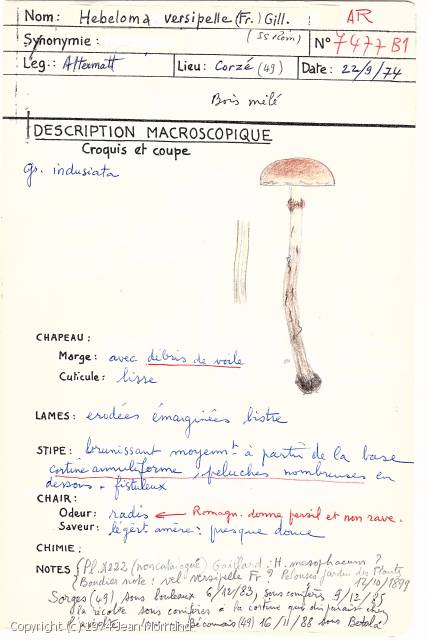 Nom: Hebeloma versipelle (Fr.) Gill. AR
Synonymie: (ss Rom) N° 7477 B1
Leg.: Altermatt Lieu: Corzé (49) Date: 22/9/74
Bois mêlé
DESCRIPTION MACROSCOPIQUE
Croquis et coupe
gr. indusiata
CHAPEAU:
Marge: avec débris de voile
Cuticule: lisse
LAMES: erodées émarginées bistre
STIPE: brunissant moyennt à partir de la base
cortine annuliforme, peluches nombreuses en
dessous. fistuleux
CHAIR:
Odeur: radis ← Romagn. donne persil et non rave.
Saveur: légèrt amère: presque douce
CHIMIE:
NOTES { Pl. 1222 (non catalogué) Gaillard: H. mesophaeum?
Boudier note: vel versipelle Fr? Pelouses jardin des Plants
17/10/1899
Sorges (49), sous bouleaux 6/12/83, sous conifères 9/12/85
la récolte sous conifères a la cortine que du jamais chez
Bécouais (49) 16/11/88 sous Betula
Copyright (c) 1997 Jean Mornand